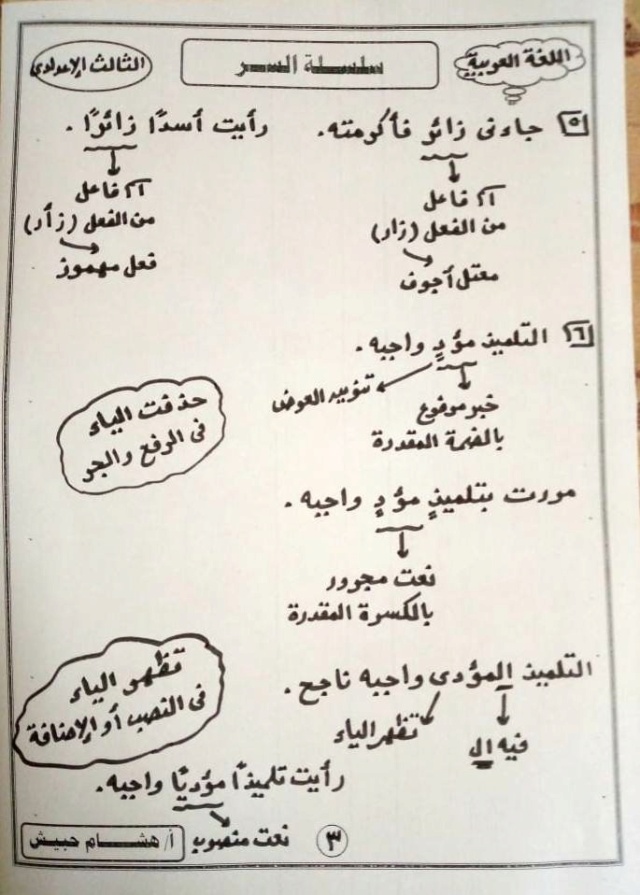 اللغة العربية
سلسلة السر
الثالث الإعدادى
٥ جاءنى زائر فأكرمته.
اسم فاعل
من الفعل (زار)
معتل أجوف
رأيت أسدًا زائرًا.
اسم فاعل
من الفعل (زأر)
فعل مهموز
٦ التلميذ مؤدٍ واجبه.
تنوين العوض
خبر مرفوع
بالضمة المقدرة
حذفت الياء
فى الرفع والجر
مررت بتلميذٍ مؤدٍ واجبه.
نعت مجرور
بالكسرة المقدرة
التلميذ المؤدى واجبه ناجح.
فيه ال
تظهر الياء
تظهر الياء
فى النصب أو الإضافة
رأيت تلميذًا مؤديًا واجبه.
نعت منصوب
٣
أ/ هشام حبيش